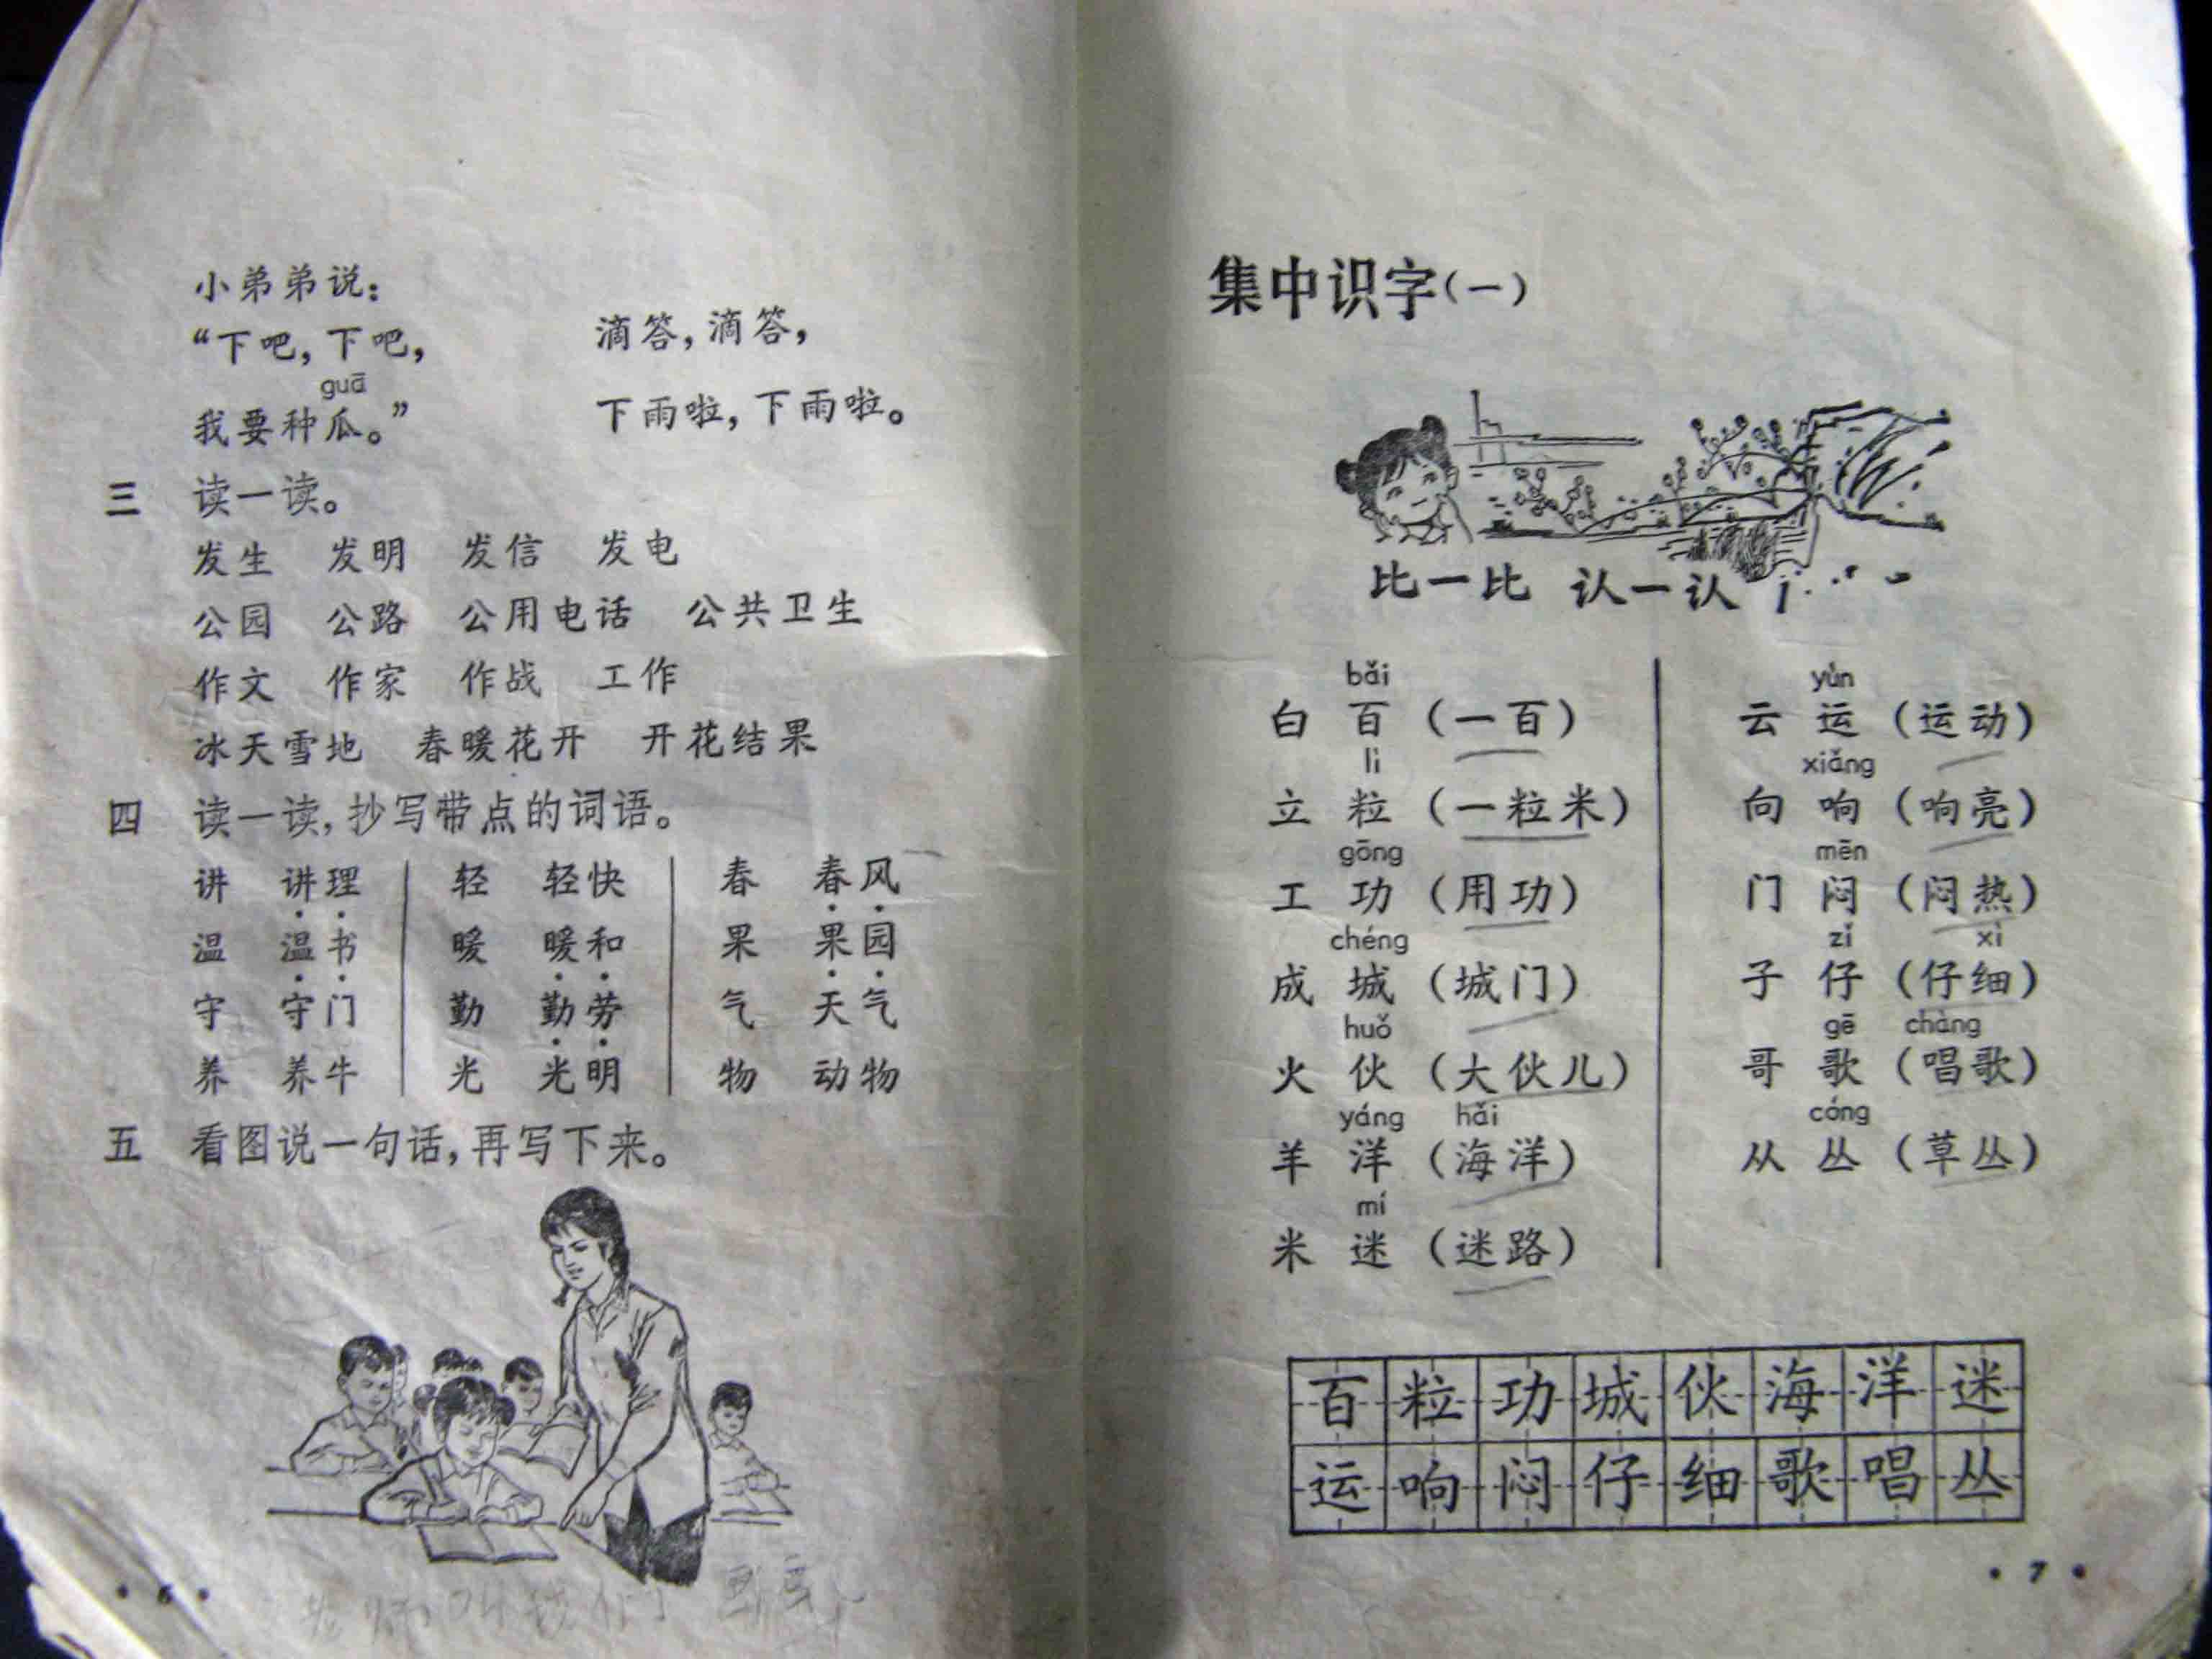 小弟弟说：
“下吧，下吧，
guā
我要种瓜。”
滴答，滴答，
下雨啦，下雨啦。
三 读一读。
发生 发明 发信 发电
公园 公路 公用电话 公共卫生
作文 作家 作战 工作
冰天雪地 春暖花开 开花结果
四 读一读，抄写带点的词语。
讲 讲理 轻 轻快 春 春风
温 温书 暖 暖和 果 果园
守 守门 勤 勤劳 气 天气
养 养牛 光 光明 物 动物
五 看图说一句话，再写下来。
老师叫我们
·6·
集中识字（一）
比一比 认一认
bǎi
白 百 （一百）
lì
立 粒 （一粒米）
gōng
工 功 （用功）
chéng
成 城 （城门）
huǒ
火 伙 （大伙儿）
yáng hǎi
羊 洋 （海洋）
mí
米 迷 （迷路）
yùn
云 运 （运动）
xiǎng
向 响 （响亮）
mēn
门 闷 （闷热）
zǐ xì
子 仔 （仔细）
gē chàng
哥 歌 （唱歌）
cóng
从 丛 （草丛）
百 粒 功 城 伙 海 洋 迷
运 响 闷 仔 细 歌 唱 丛
·7·